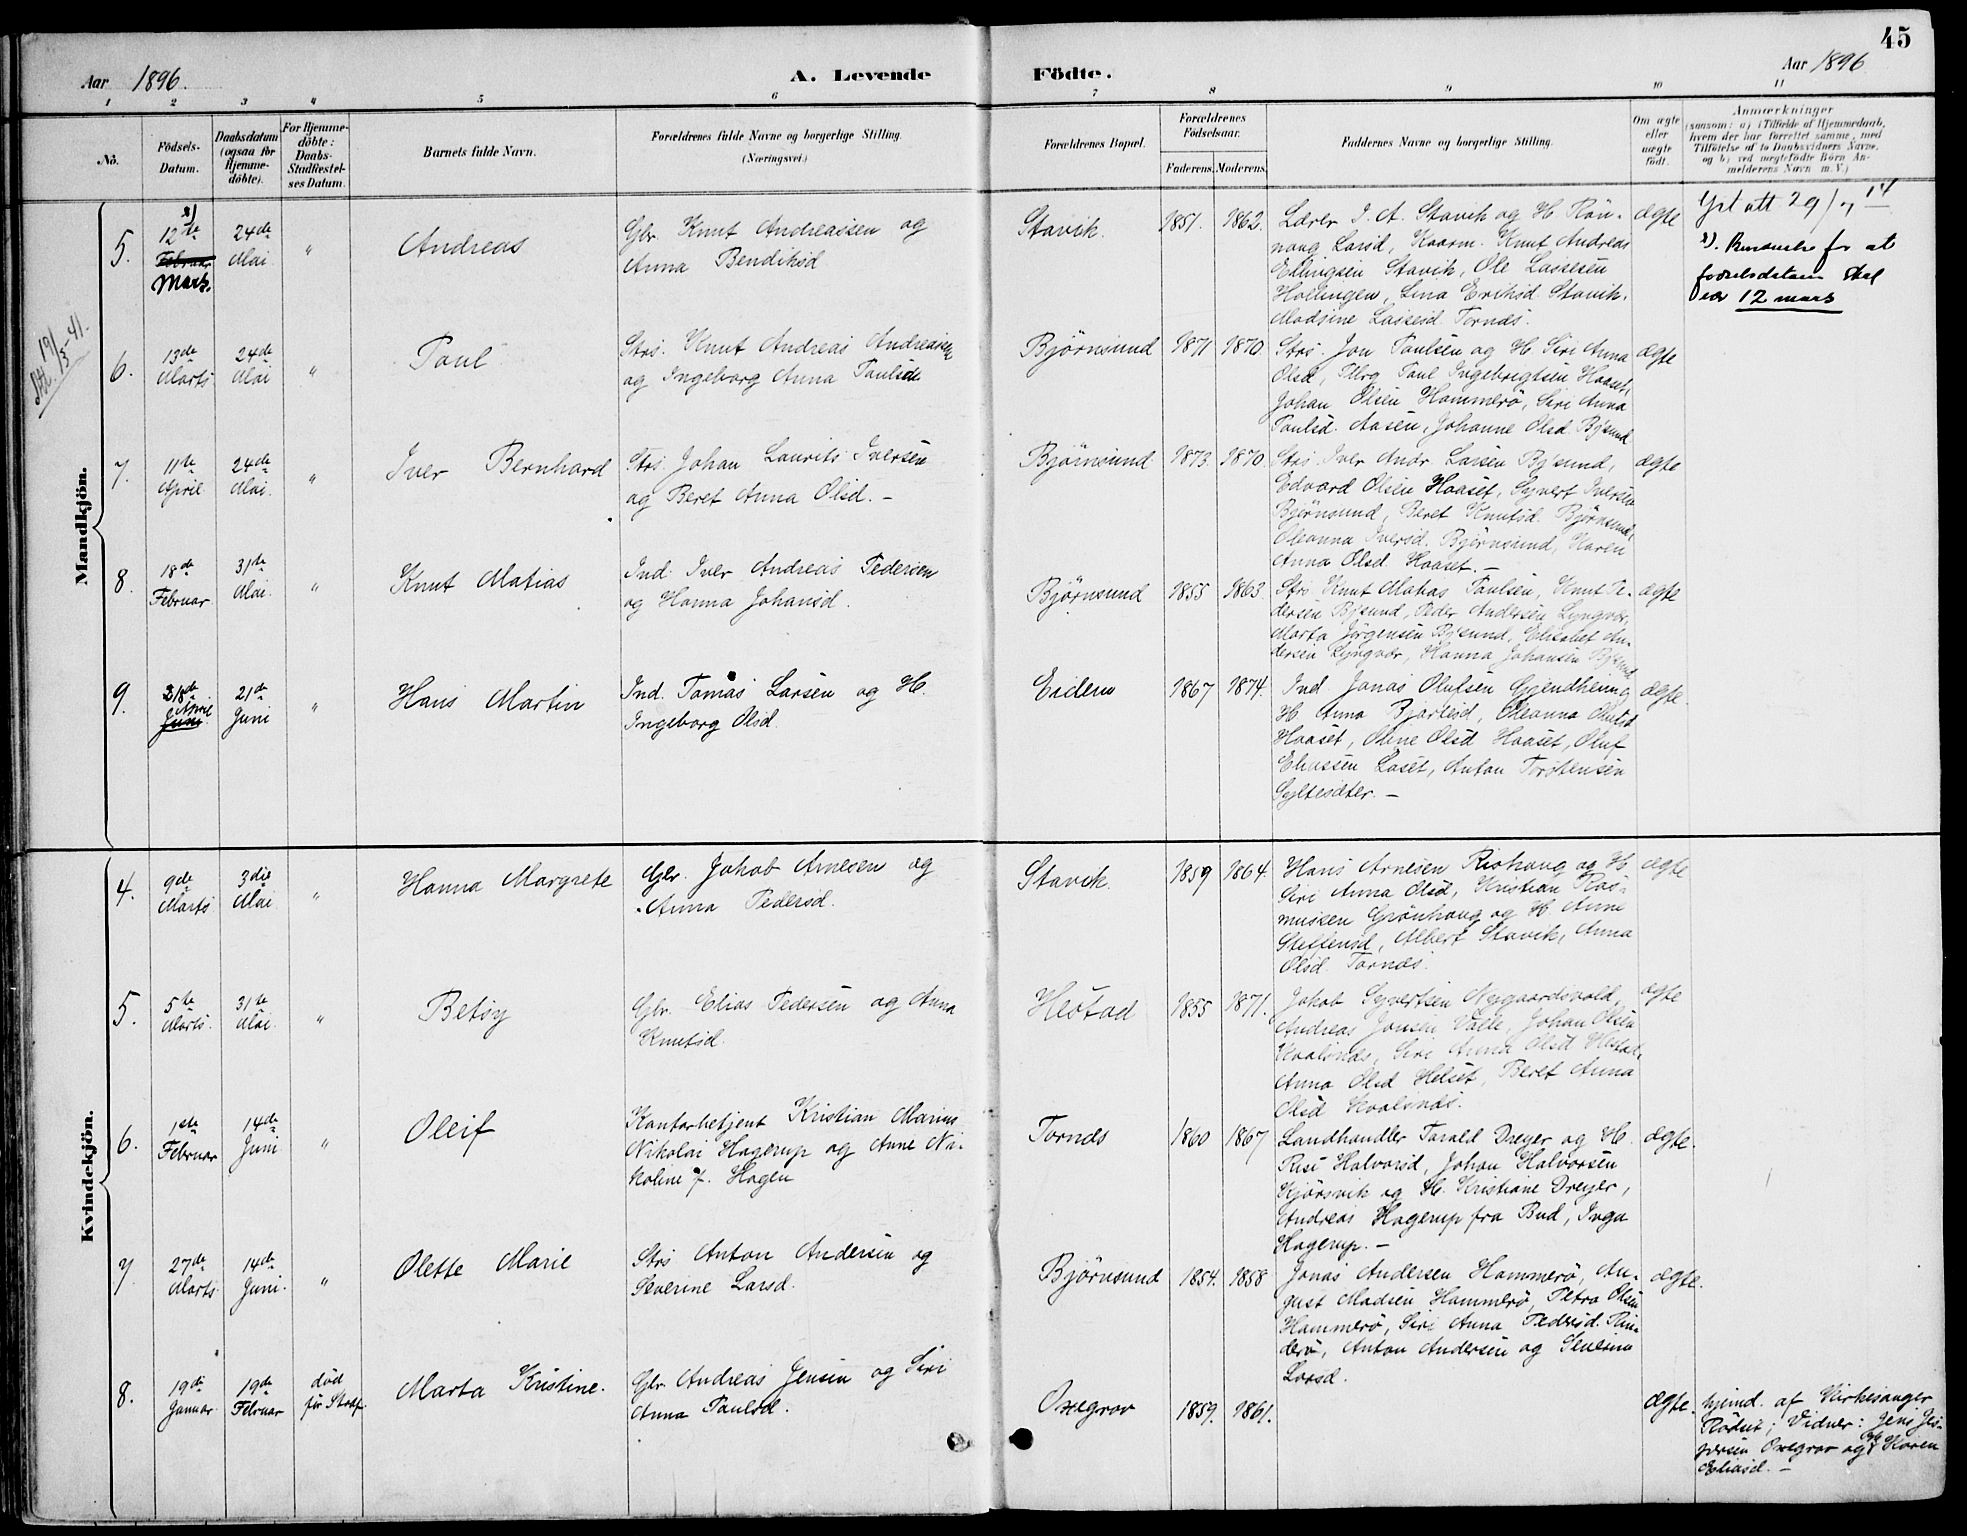 45
Aar 1896.
A. Levende Födte.
Aar 1896
1 2 3 4 5 6 7 8 9 10 11
No.
Födsels-
Datum.
Daabsdatum
(ogsaa for
Hjemme-
döbte).
For Hjemme-
döbte:
Daabs-
Stadfæstel-
ses Datum.
Barnets fulde Navn.
Forældrenes fulde Navne og borgerlige Stilling.
(Næringsvei.)
Forældrenes Bopæl.
Forældrenes
Födselsaar.
Faderens. Moderens.
Faddernes Navne og borgerlige Stilling.
Om ægte
eller
uægte
födt.
Anmærkninger
(saasom: a) i Tilfælde af Hjemmedaab,
hvem der har forrettet samme, med
Tilföielse af to Daabsvidners Navne,
og b) ved uægtefödte Börn An-
melderens Navn m.V.)
Mandkjön.
5.
x)
12te
Februar
Marts.
24de
Mai
"
Andreas
Gbr. Knut Andreassen og
Anna Bendiksd.
Stavik.
1851. 1862.
Lærer I. A. Stavik og H. Rön-
naug Larsd, Kaarm. Knut Andreas
Ellingsen Stavik, Ole Lassesen
Hollingen, Lina Eriksd. Stavik.
Madsine Lassesd. Tornes.
ægte
x). for at
födselsdatum skal
være 12 mars
19/3-41.
6.
13de
Marts
24de
Mai
"
Paul
Strs. Knut Andreas Andreasen
og Ingeborg Anna Paulsd.
Björnsund
1871 1870.
Strs. Jon Paulsen og H. Siri Anna
Olsd, Paul Ingebrigtsen Haaset,
Johan Olsen Hammerö, Siri Anna
Paulsd. Aasen, Johanne Olsd. Bj.sund
ægte
7.
11te
April
24de
Mai.
"
Iver Bernhard
Strs. Johan Laurits Iversen
og Beret Anna Olsd. -
Björnsund
1873. 1870.
Strs. Iver Andr. Larsen Bj.sund,
Edvard Olsen Haaset, Syvert Iversen
Björnsund, Beret Knutsd. Björnsund,
Oleanna Iversd. Björnsund, Karen
Anna Olsd. Haaset. -
ægte
8.
18de
Februar.
31te
Mai.
"
Knut Matias
Ind. Iver Andreas Pedersen
og Hanna Johansd.
Björnsund
1855 1863.
Strs. Knut Matias Paulsen, Knut Pe-
dersen Bj.sund, Peder Andersen Lyngvær,
Marta Jörgensen Bj.sund, Elisabet An-
dersen Lyngvær, Hanna Johansen Bj.sund
ægte
9.
18de
April
Juni
21de
Juni
"
Hans Martin
Ind. Tomas Larsen og H.
Ingeborg Olsd.
Eidem
1867 1874.
Ind. Jonas Olulsen Gjendheim og
H. Anna Bjartesd, Oleanna
Haaset, Oline Olsd Haaset, Oluf
Eliassen Laset, Anton Torstensen
Syltesæter. -
ægte.
Kvindekjön.
4.
9de
Marts
3die
Mai
"
Hanna Margrete
Gbr. Jakob Arnesen og
Anna Pedersd.
Stavik.
1859 1864.
Hans Arnesen Rishaug og H.
Siri Anna Olsd, Kristian Ras-
mussen Grönhaug og H. Anne
Steffensd, Albert Stavik, Anna
Olsd. Tornes.
ægte
5.
5te
Marts.
31te
Mai.
"
Betsy
Gbr. Elias Pedersen og Anna
Knutsd.
Hestad
1855 1871.
Jakob Syvertsen Nygaardsvold,
Andreas Jonsen Valle, Johan Olsen
Kvalsnes, Siri Anna Olsd Hestad,
Anna Olsd Helset, Beret Anna
Olsd Kvalsnes.
ægte
6.
1ste
Februar
14de
Juni
"
Oleif
Kontorbetjent Kristian Marius
Nikolai Hagerup og Anne Ni-
koline f. Hagen
Tornes
1860 1867
Landhandler Tarald Dreyer og H.
Risi Halvorsd, Johan Halvorsen
Kjörsvik og H. Kristiane Dreyer,
Andreas Hagerup fra Bud, Inga
Hagerup. -
ægte.
7
27de
Marts
14de
Juni.
"
Olette Marie
Strs Anton Andersen og
Severine Larsd.
Björnsund
1854. 1858
Jonas Andersen Hammerö, Au-
gust Madsen Hammerö, Petra Olsen
Hammerö, Siri Anna Pedersd. Rin-
derö, Anton Andersen og Severine
Larsd.
ægte.
8.
19de
Januar
19de
Februar
död
för Stadf.
Marta Kristine.
Gbr. Andreas Jensen og Siri
Anna Paulsd.
Oxegrov
1859. 1861.
ægte.
hjemd. af Kirkesanger
Rödset; Vidner: Jens Jes-
persen Oxegrov og Karen
Eliasd. -